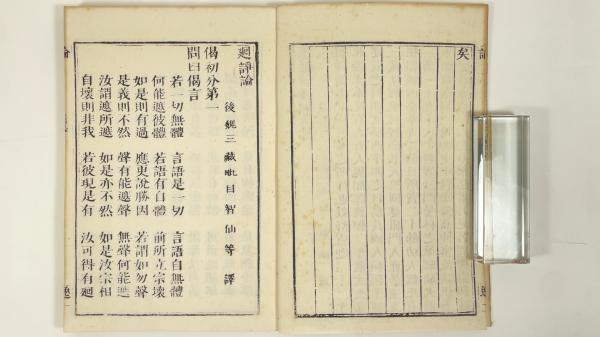 矣
廻諍論
後魏三藏毗目智仙等譯
偈初分第一
問曰偈言
若一切無體 言語是一切 言語自無體
何能遮彼體 若語有自體 前所立宗壞
如是則有過 應更說勝因 若謂如勿聲
是義則不然 聲有能遮聲 無聲何能遮
汝謂遮所遮 如是亦不然 如是汝宗相
自壞則非我 若彼現是有 汝可得有廻